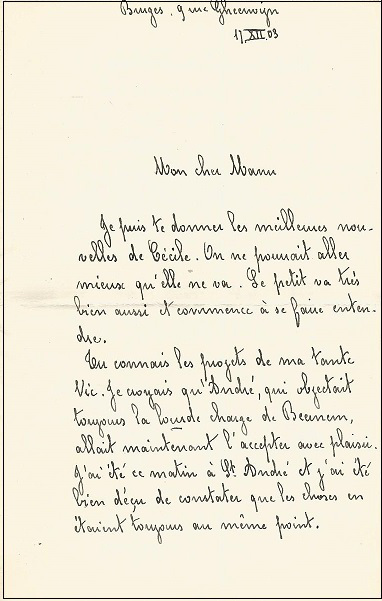 Bruges. 9 rue Gheerwijn
17.XII.03
Mon cher Manu
Je puis te donner les meilleures nou-
velles de Cécile. On ne pourrait aller
mieux qu'elle ne va. Le petit va très
bien aussi et commence à se faire enten-
dre.
Tu connais les projets de ma tante
Vic. Je croyais qu'André, qui objectait
toujours la lourde charge de Beernem,
allait maintenant l'accepter avec plaisir.
J'ai été ce matin à St André et j'ai été
bien déçu de constater que les choses en
étaient toujours au même point.